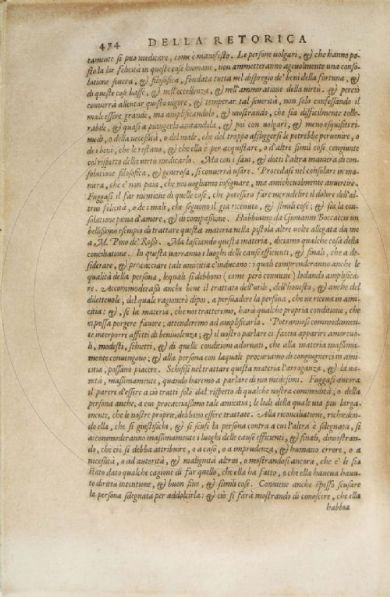 474 DELLA RETORICA
tamente si può medicare, come è manifesto. Le persone volgari, & che hanno po-
sta la lor felicità in queste cose humane, non ammetteranno agevolmente una conso-
latione severa, & filosofica, fondata tutta nel dispregio de' beni della fortuna, &
di queste cose basse, & nell'eccellenza, & nell'ammiratione della virtù. & perciò
converrà alleviar questo rigore, & temperar tal severità, non solo confessando il
male essere grande, ma amplificandolo, & mostrando, che sia difficilmente tolle-
rabile, & quasi a piangerlo aiutandola, & poi con volgari, & meno esquisiti ri-
medi, o della necessità, o del male, che del troppo affliggersi le potrebbe pervenire, o
de i beni, che le restano, & che ella è per acquistare, o d'altre simili cose congiunte
col rispetto della virtù medicarlo. Ma con i savi, & dotti l'altra maniera di con-
solatione filosofica, & generosa, si converrà usare. Procedasi nel consolare in ma-
niera, che e' non paia, che noi vogliamo insegnare, ma amichevolmente avvertire.
Fuggasi il far mentione di quelle cose, che potessero fare incrudelire il dolore dell'al-
trui felicità, o de i mali, che seguono il già ricevuto, & di simili cose: & sia la con-
solatione piena d'amore, & di compassione. Habbiamo da Giovanni Boccaccio un
bellissimo essempio di trattare questa materia nella pistola altre volte allegata da noi
a M. Pino de' Rossi. Ma lasciando questa materia, diciamo qualche cosa della
conciliatione. In questa verranno i luoghi delle cause efficienti, & finali, che a de-
siderare, & procacciare tale amicitia c'inducano: i quali comprenderanno anche le
qualità della persona, laquale si debbono (come però convien) lodando amplifica-
re. Accommoderassi anche bene il trattato dell'utile, dell'honesto, & anche del
dilettevole, del quale ragioneré dipoi, a persuadere la persona, che ne riceva in ami-
citia: &, se la materia, che noi tratteremo, harà qualche propria conditione, che
ci possa porgere favore; attenderemo ad amplificarla. Potrannosi commodamen-
te interporre affetti di benivolenza: &, il nostro parlare ci faccia apparire amorevo-
li, modesti, schietti, & di quelle conditioni adornati, che alla materia massima-
mente convengano; & alla persona con laquale procuriamo di congiugnerci in ami-
citia, possano piacere. Schifisi nel trattare questa materia l'arroganza, & la vani-
tà, massimamente, quando haremo a parlare di noi medesimi. Fuggasi ancora
il parere d'essere a ciò tirati solo dal rispetto di qualche nostra commodità; o della
persona anche, a cui procacciassimo tale amicitia; le lodi della quale un poco larga-
mente, che le nostre proprie, debbano essere trattate. Alla reconciliatione, richieden-
do ella, che si giustifichi, & si scusi la persona contra a cui l'altra è sdegnata, si
accommoderanno massimamente i luoghi delle cause efficienti, & finali, dimostran-
do, che ciò si debba attribuire, o a caso, o a imprudenza, & humano errore, o a
necessità, o ad autorità, & malignità altrui, o mostrandosi ancora, che e' le sia
stata data qualche cagione di far quello, che ella ha fatto, o che ella haveva havu-
to diritta intentione, & buon fine, & simili cose. Conviene anche spesso scusare
la persona sdegnata per addolcirla: & ciò si farà mostrando di conoscere, che ella
habbia